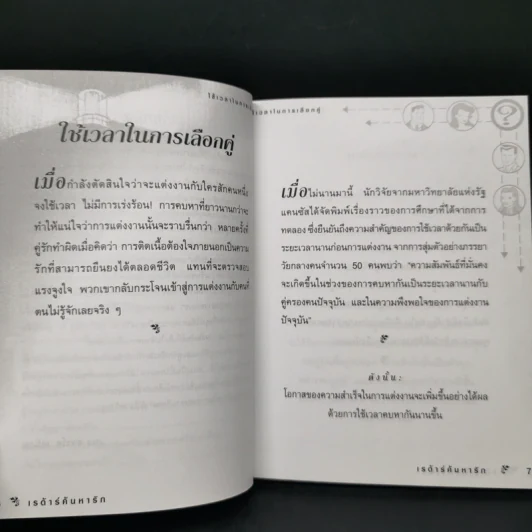 ใช้เวลาในการเลือกคู่
เมื่อกำลังตัดสินใจว่าจะแต่งงานกับใครสักคนหนึ่ง
จงใช้เวลา ไม่มีการเร่งร้อน! การคบหาที่ยาวนานกว่าจะ
ทำให้แน่ใจว่าการแต่งงานนั้นจะราบรื่นกว่า หลายครั้งที่
คู่รักทำผิดเมื่อคิดว่า การติดเนื้อต้องใจภายนอกเป็นความ
รักที่สามารถยืนยงได้ตลอดชีวิต แทนที่จะตรวจสอบ
แรงจูงใจ พวกเขากลับกระโจนเข้าสู่การแต่งงานกับคนที่
ตนไม่รู้จักเลยจริง ๆ
เรด้าร์ค้นหารัก
ใช้เวลาในการเลือกคู่
?
เมื่อไม่นานมานี้ นักวิจัยจากมหาวิทยาลัยแห่งรัฐ
แคนซัสได้จัดพิมพ์เรื่องราวของการศึกษาที่ได้จากการ
ทดลอง ซึ่งยืนยันถึงความสำคัญของการใช้เวลาด้วยกันเป็น
ระยะเวลานานก่อนการแต่งงาน จากการสุ่มตัวอย่างภรรยา
วัยกลางคนจำนวน 50 คนพบว่า "ความสัมพันธ์ที่มั่นคง
จะเกิดขึ้นในช่วงของการคบหากันเป็นระยะเวลานานกับ
คู่ครองคนปัจจุบัน และในความพึงพอใจของการแต่งงาน
ปัจจุบัน"
ดังนั้น:
โอกาสของความสำเร็จในการแต่งงานจะเพิ่มขึ้นอย่างได้ผล
ด้วยการใช้เวลาคบหากันนานขึ้น
เรด้าร์ค้นหารัก 7